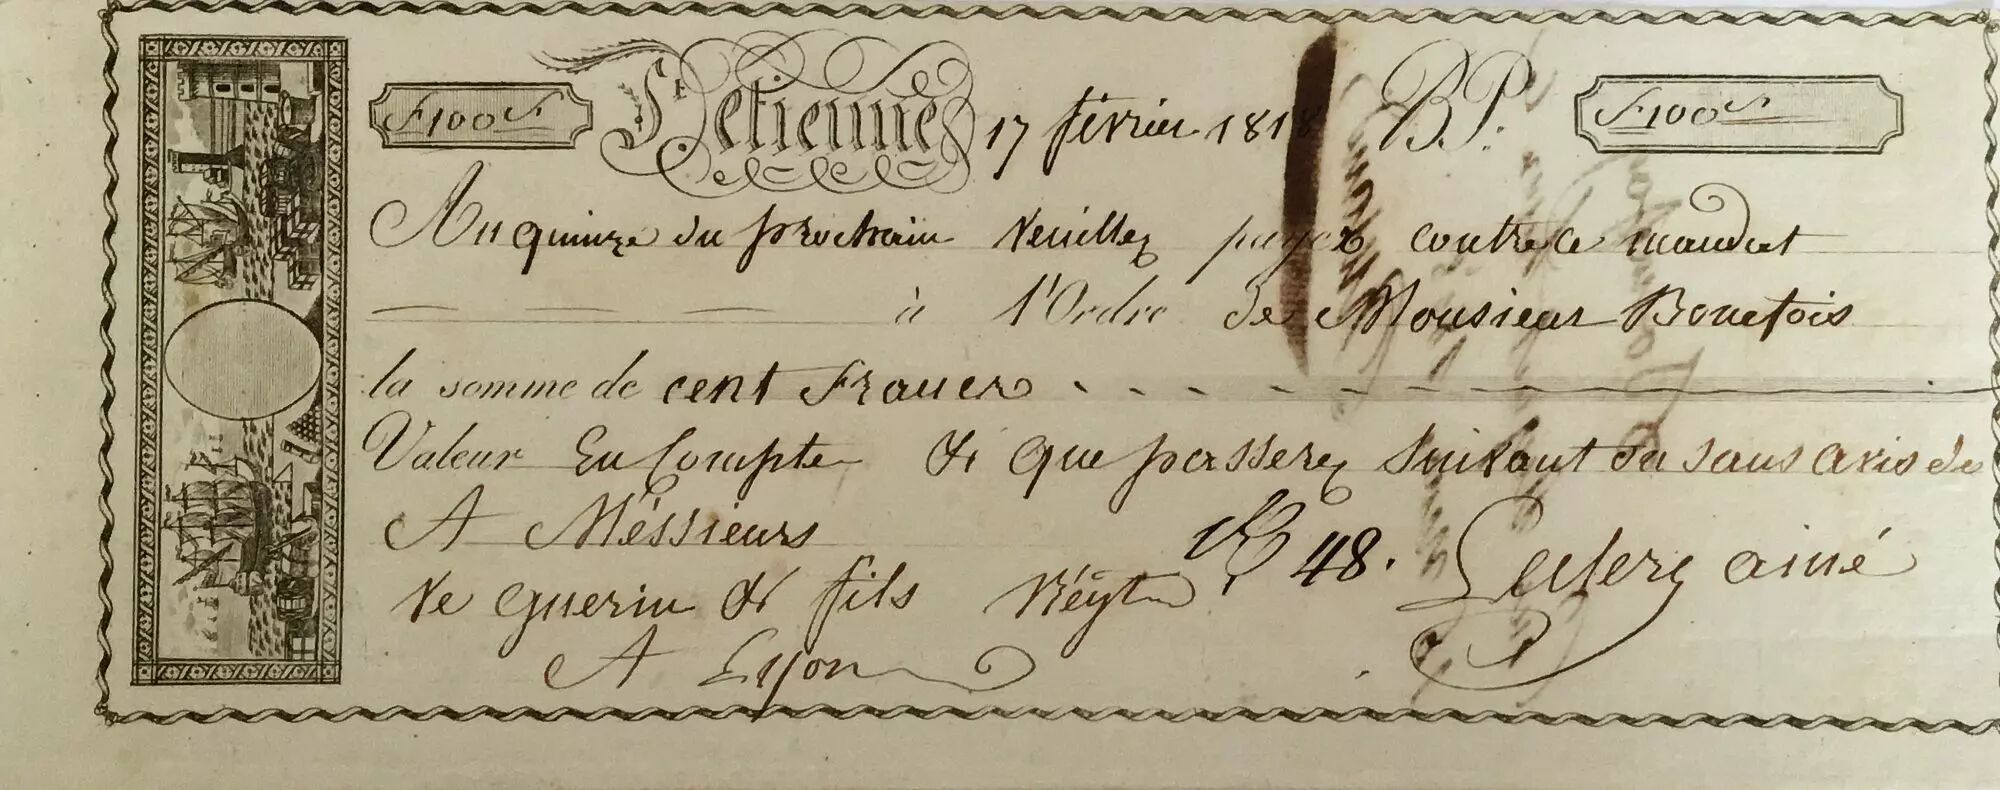 F 100 S St etienne 17 février 1818 B.P. F 100 S
Au quinze du prochain veuillez payer contre ce mandat
à l'Ordre de Monsieur Bonefois
la somme de cent francs
Valeur En Compte & que passerez suivant ou sans avis de
A Méssieurs 48. Leclerq ainé
Ve guerin & fils
A Lyon